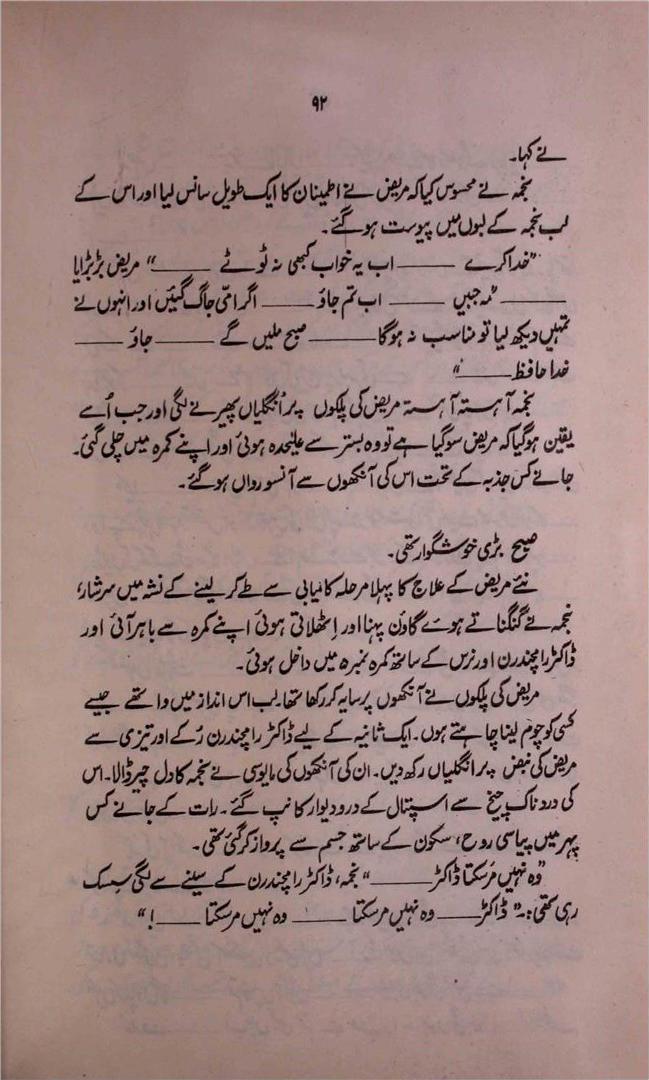 ۹۲
نے کہا۔
نجمہ نے محسوس کیا کہ مریض نے اطمینان کا ایک طویل سانس لیا اور اس کے
لب نجمہ کے لبوں میں پیوست ہو گئے۔
”خدا کرے ——— اب یہ خواب کبھی نہ ٹوٹے ———“ مریض بڑبڑایا
——— ”مہ جبیں ——— اب تم جاؤ ——— اگر امّی جاگ گئیں اور انہوں نے
تمہیں دیکھ لیا تو مناسب نہ ہوگا ——— صبح ملیں گے ——— جاؤ ———
خدا حافظ ———“
نجمہ آہستہ آہستہ مریض کی پلکوں پر انگلیاں پھیرنے لگی اور جب اُسے
یقین ہوگیا کہ مریض سوگیا ہے تو وہ بستر سے علیٰحدہ ہوئی اور اپنے کمرہ میں چلی گئی۔
جانے کس جذبہ کے تحت اس کی آنکھوں سے آنسو رواں ہوگئے۔
صبح بڑی خوشگوار تھی۔
نئے مریض کے علاج کا پہلا مرحلہ کامیابی سے طے کر لینے کے نشہ میں سرشار،
نجمہ نے گنگناتے ہوئے گاؤن پہنا اور اِٹھلاتی ہوئی اپنے کمرہ سے باہر آئی اور
ڈاکٹر رامچندرن اور نرس کے ساتھ کمرہ نمبر ۵ میں داخل ہوئی۔
مریض کی پلکوں نے آنکھوں پر سایہ کر رکھا تھا۔ لب اس انداز میں وا تھے جیسے
کسی کو چوم لینا چاہتے ہوں۔ ایک ثانیہ کے لیے ڈاکٹر رامچندرن رُکے اور تیزی سے
مریض کی نبض پر انگلیاں رکھ دیں۔ ان کی آنکھوں کی مایوسی نے نجمہ کا دل چیر ڈالا۔ اس
کی دردناک چیخ سے اسپتال کے در و دیوار کانپ گئے۔ رات کے جانے کس
پہر میں پیاسی روح، سکون کے ساتھ جسم سے پرواز کر گئی تھی۔
”وہ نہیں مرسکتا ڈاکٹر ———“ نجمہ، ڈاکٹر رامچندرن کے سینے سے لگی سسک
رہی تھی:۔ ”ڈاکٹر ——— وہ نہیں مرسکتا ——— وہ نہیں مرسکتا ———!“